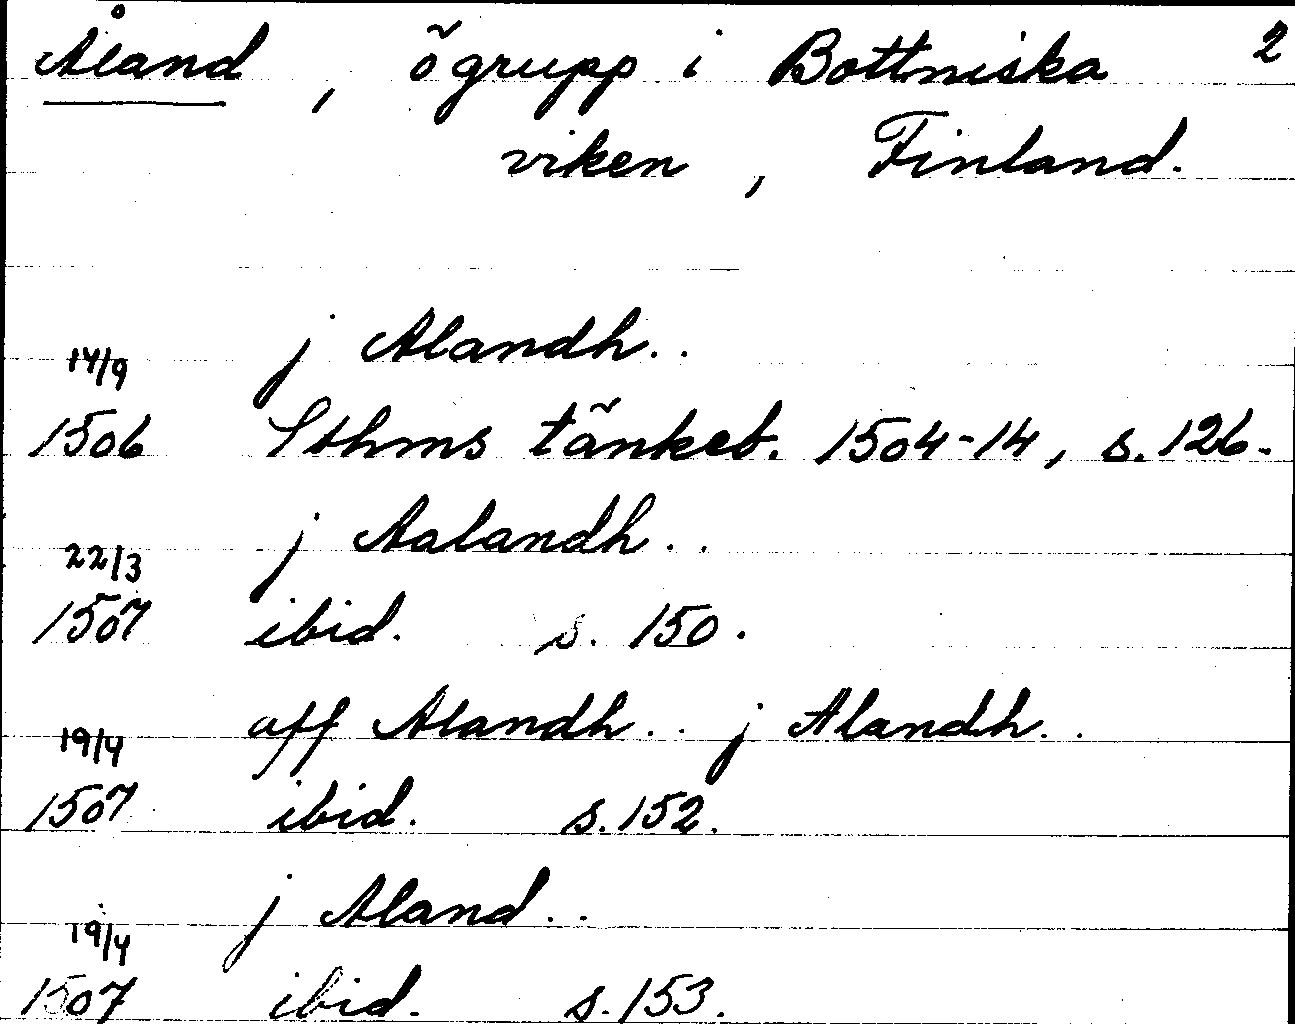 Åland , ögrupp i Bottniska 2
viken , Finland.
14/9 j Alandh..
1506 Sthms tänkeb. 1504-14, s. 126.
22/3 j Aalandh..
1507 ibid. s. 150.
19/4 aff Alandh.. j Alandh..
1507 ibid. s. 152.
19/4 j Aland..
1507 ibid. s. 153.